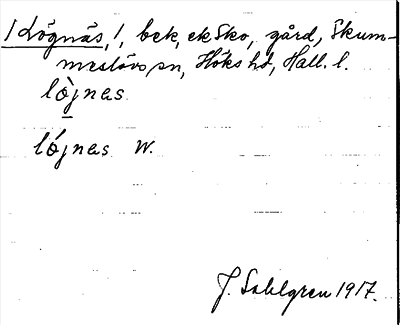 /Lögnäs, /, bek, ek Sko, gård, Skum-
meslövs sn, Höks hd, Hall. l.
lòjnas
lójnas W.
J. Sahlgren 1917.